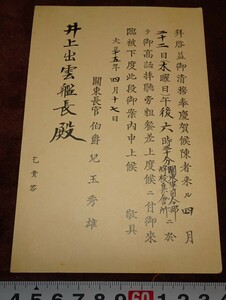 拜啓益御清務奉慶賀候陳者來ル四月
二十二日木曜日午後六時三十分關東軍司令部ニ於
テ御高話拜聽旁粗餐差上度候ニ付御來
臨被下度此段御案内申上候　敬具
大正十五年四月十七日
關東長官伯爵兒玉秀雄
井上出雲艦長殿
乞貴答
4 5 6 7 8 9 60 1 2 3 4